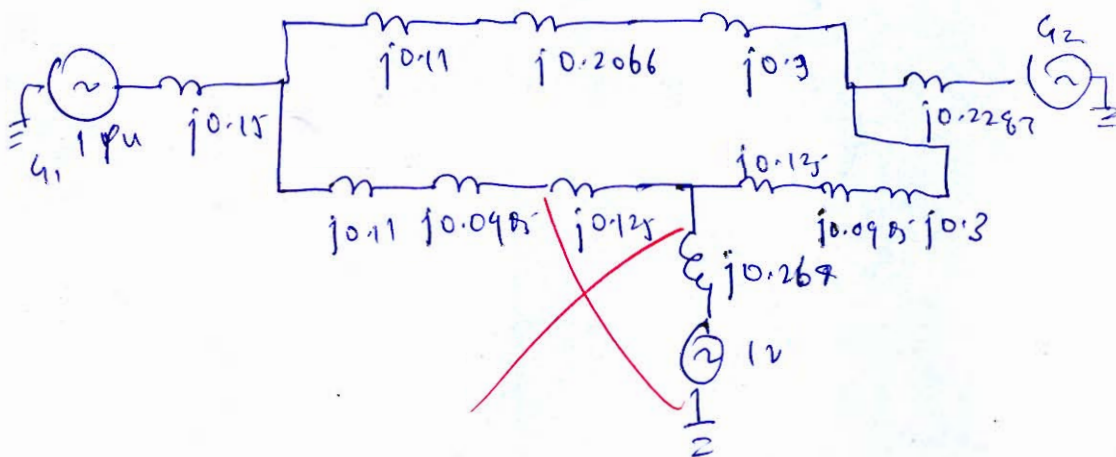 G2
j0.11 j0.2066 j0.3
1 pu j0.15
G1
j0.2287
j0.125
j0.11 j0.0985 j0.125
j0.0985 j0.3
j0.264